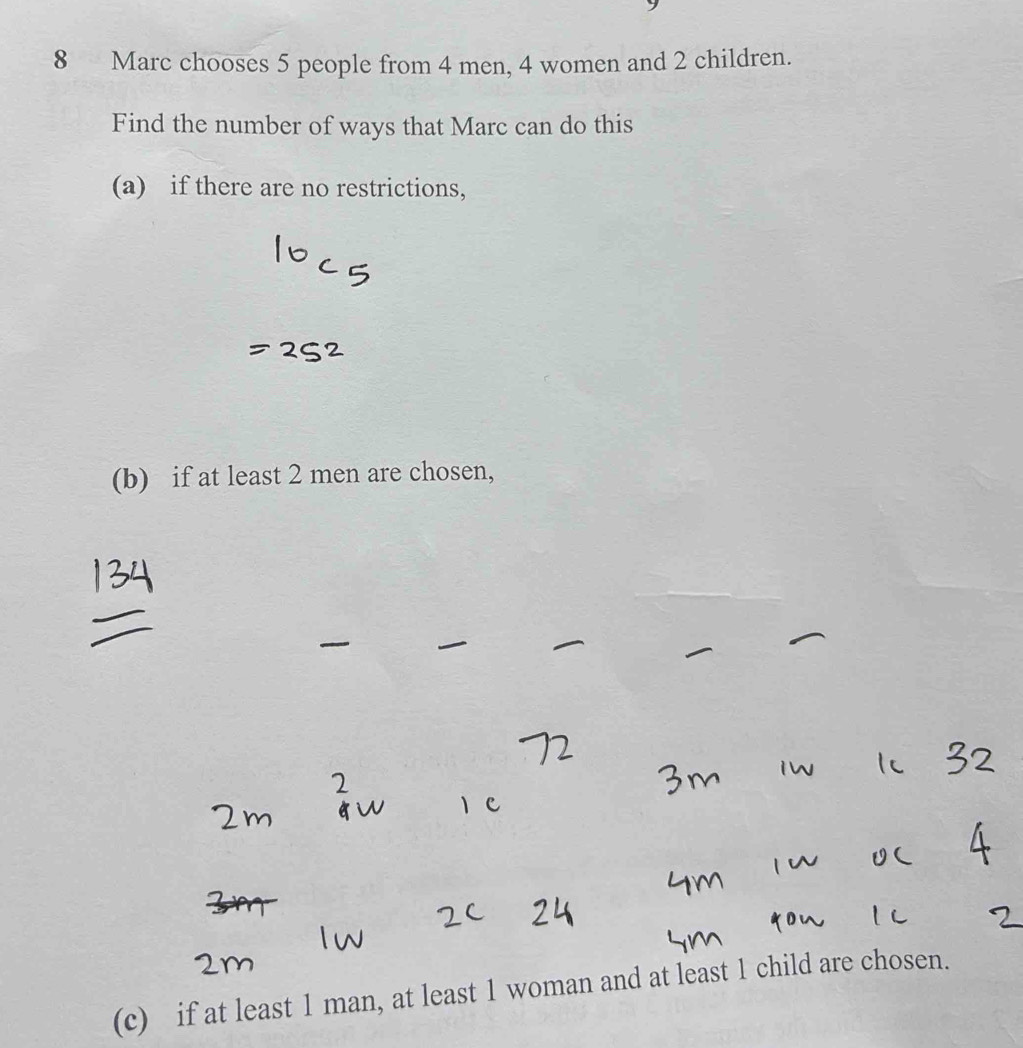 8 Marc chooses 5 people from 4 men, 4 women and 2 children.
Find the number of ways that Marc can do this
(a) if there are no restrictions,
10 c 5
= 252
(b) if at least 2 men are chosen,
134
2m 2w 1c 72
3m 1w 1c 32
4m 1w 0c 4
2m 1w 2c 24
4m 0w 1c 2
(c) if at least 1 man, at least 1 woman and at least 1 child are chosen.